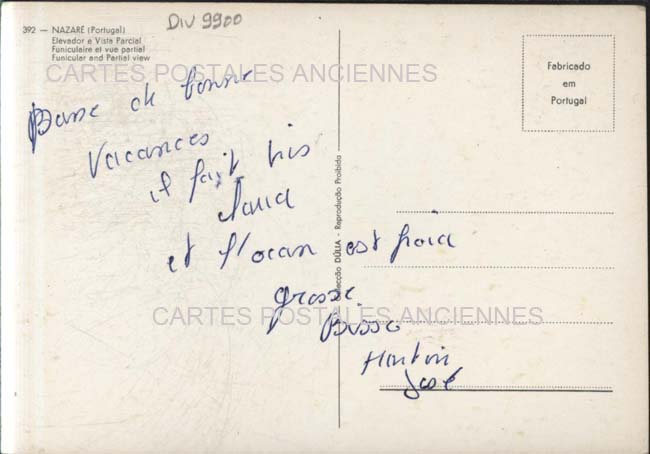 Div 9900
392 — NAZARÉ (Portugal)
Elevador e Vista Parcial
Funiculaire et vue partial
Funicular and Partial view
CARTES POSTALES ANCIENNES
Fabricado
em
Portugal
de bonne
Vacances
il fait
chaud
et l'ocean est froid
grosse
Bisse
José
Colecção DÚLIA - Reprodução Proibida
CARTES POSTALES ANCIENNES